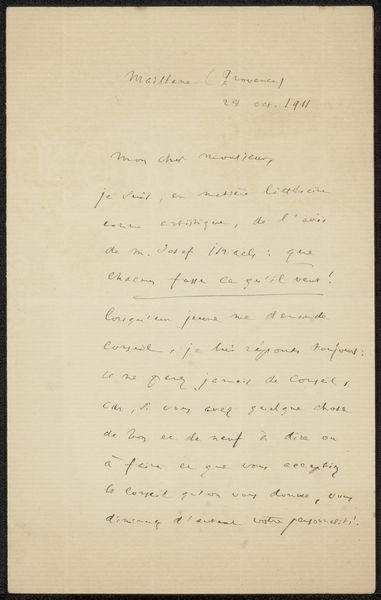 Maillane (Provence)
28 oct. 1911
mon cher monsieur,
je suis, en matière littéraire
comme artistique, de l'avis
de m. Josef Israels : que
chacun fasse ce qu'il veut !
lorsqu'un jeune me demande
conseil, je lui réponds toujours :
ne prenez jamais de conseil,
car, si vous avez quelque chose
de bon et de neuf à dire ou
à faire et que vous acceptiez
le conseil qu'on vous donne, vous
diminuez d'autant votre personnalité.